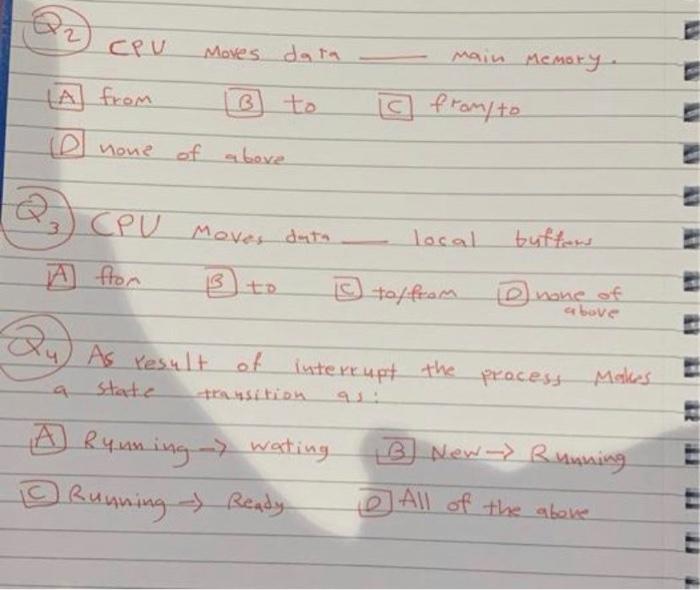 Q2 CPU Moves data ___ main Memory.
A from B to C from/to
D none of above
Q3 CPU Moves data ___ local buffers
A from B to C to/from D none of
above
Q4 As result of interrupt the process Makes
a state transition as:
A Running → wating B New → Running
C Running → Ready D All of the above